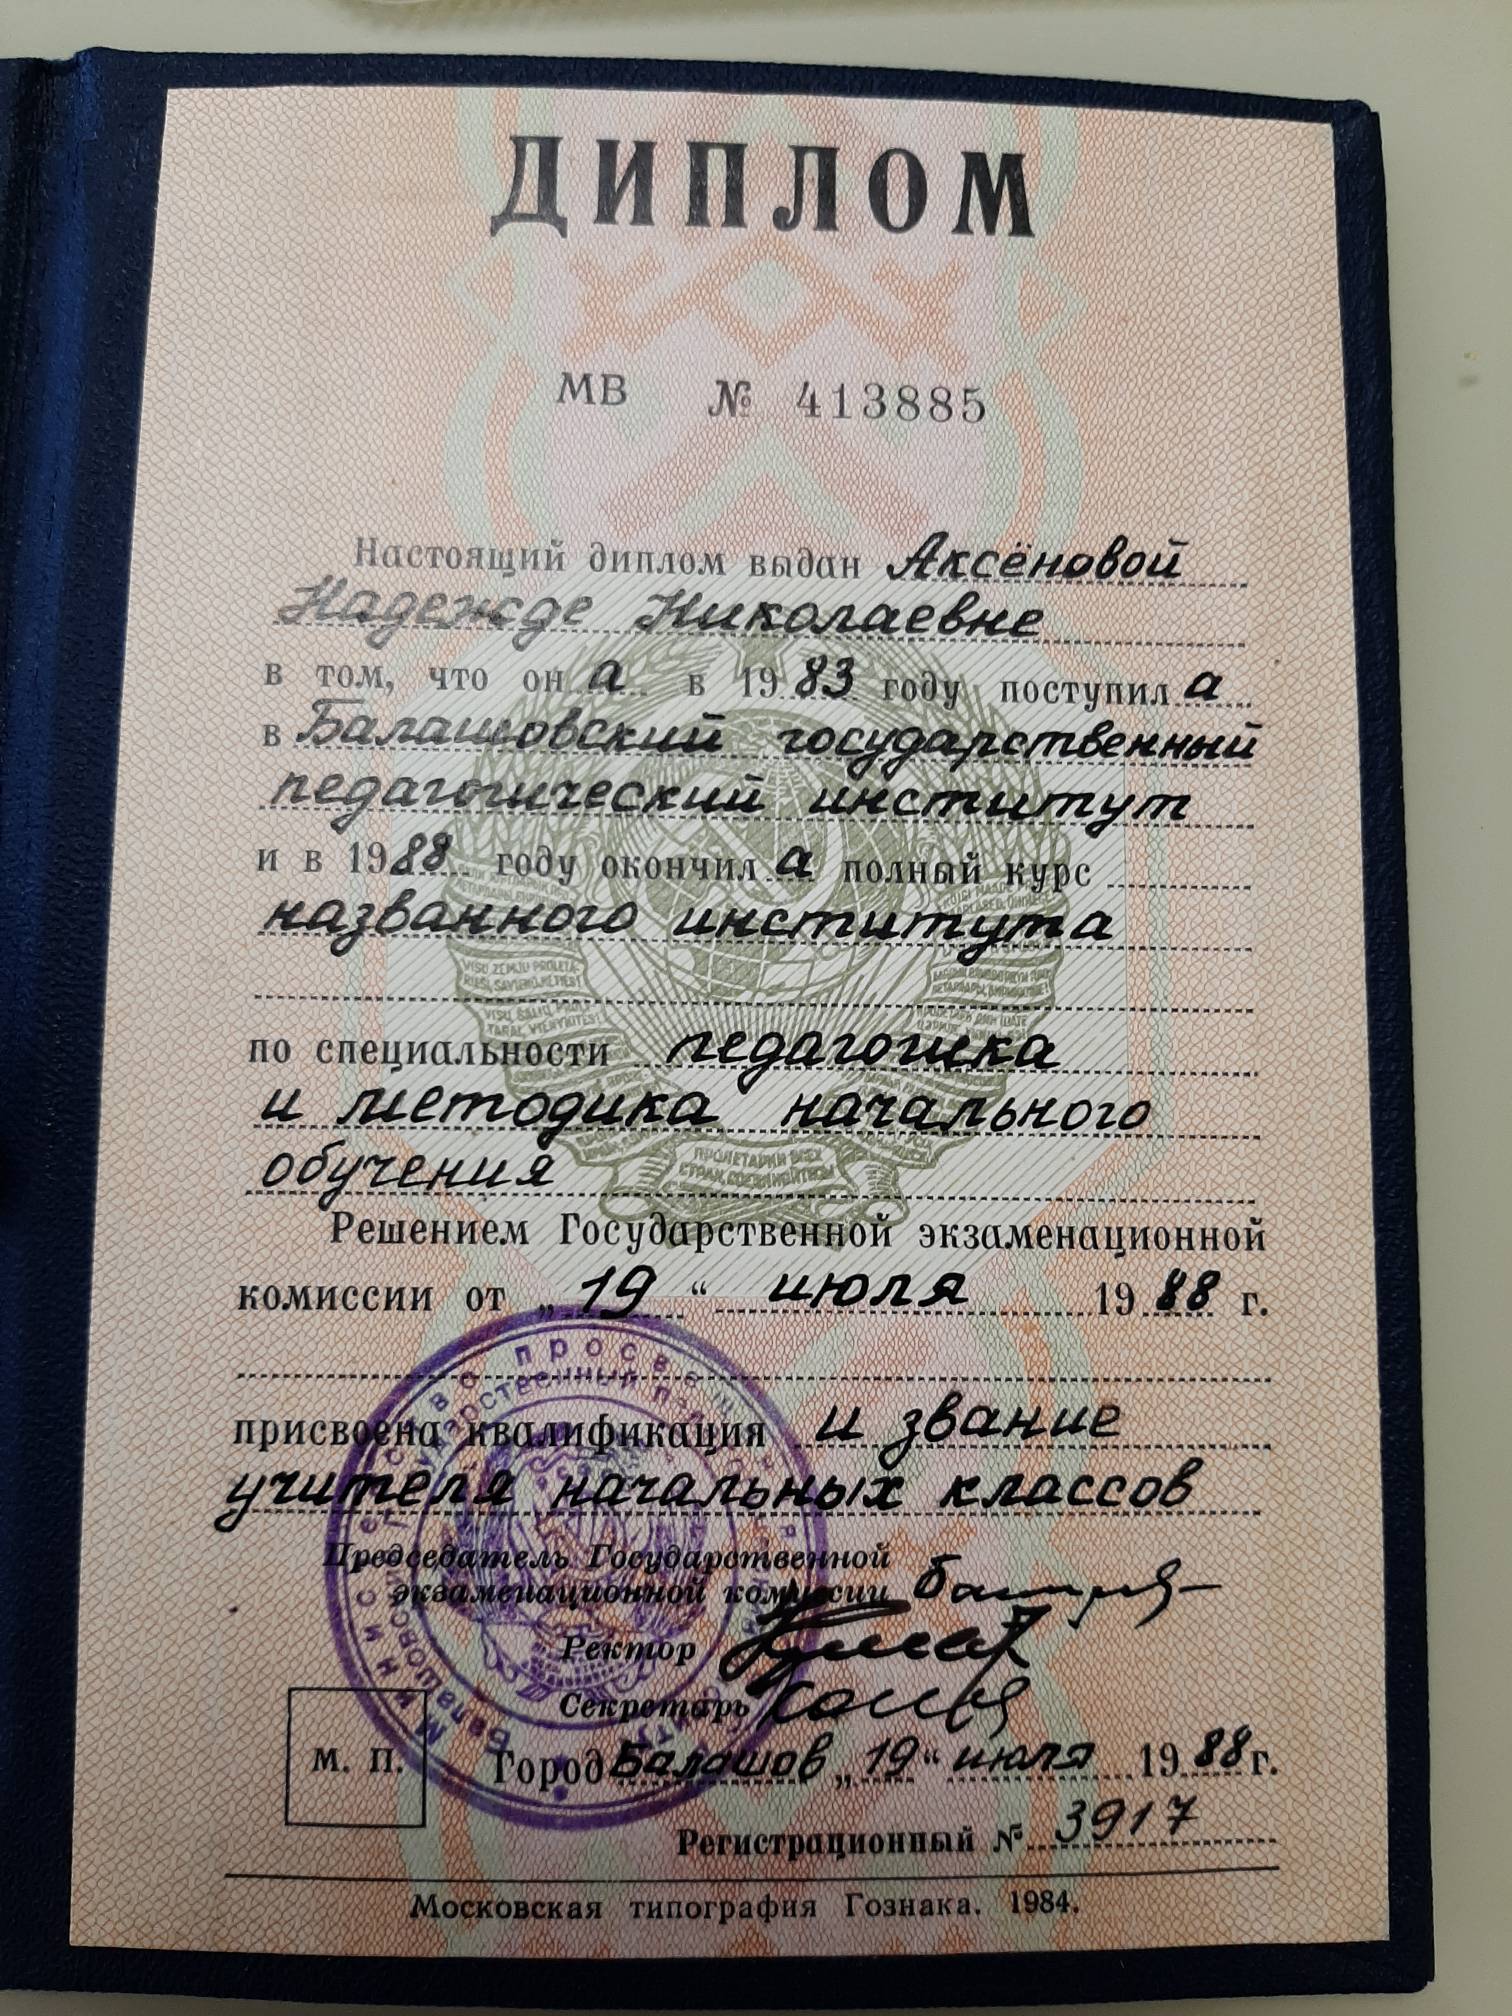 ДИПЛОМ
МВ № 413885
Настоящий диплом выдан Аксёновой
Надежде Николаевне
в том, что он а в 1983 году поступил а
в Балашовский государственный
педагогический институт
и в 1988 году окончил а полный курс
названного института
по специальности педагогика
и методика начального
обучения
Решением Государственной экзаменационной
комиссии от „19“ июля 1988 г.
присвоена квалификация и звание
учителя начальных классов
Председатель Государственной
экзаменационной комиссии
Ректор
Секретарь
М. П.
Город Балашов „19“ июля 1988 г.
Регистрационный № 3917
Московская типография Гознака. 1984.
ПРОЛЕТАРИИ ВСЕХ
СТРАН, СОЕДИНЯЙТЕСЬ!